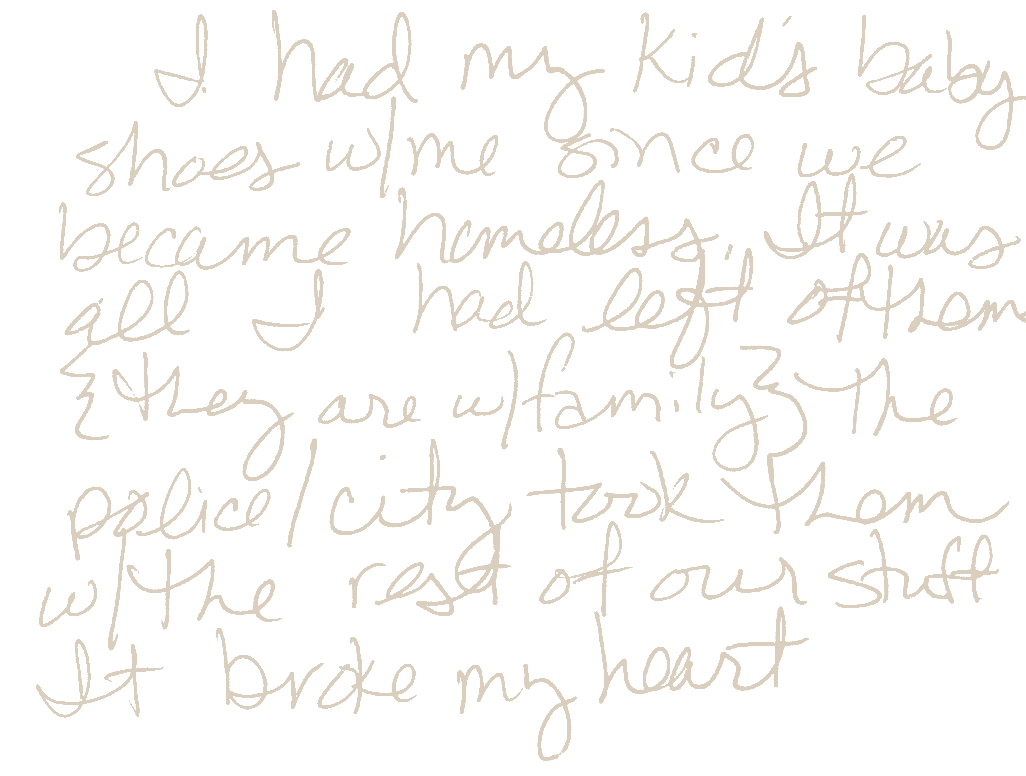 I had my kid's baby
shoes w/me since we
became homeless. It was
all I had left of them
{they are w/family} The
police/city took them
w/the rest of our stuff
It broke my heart